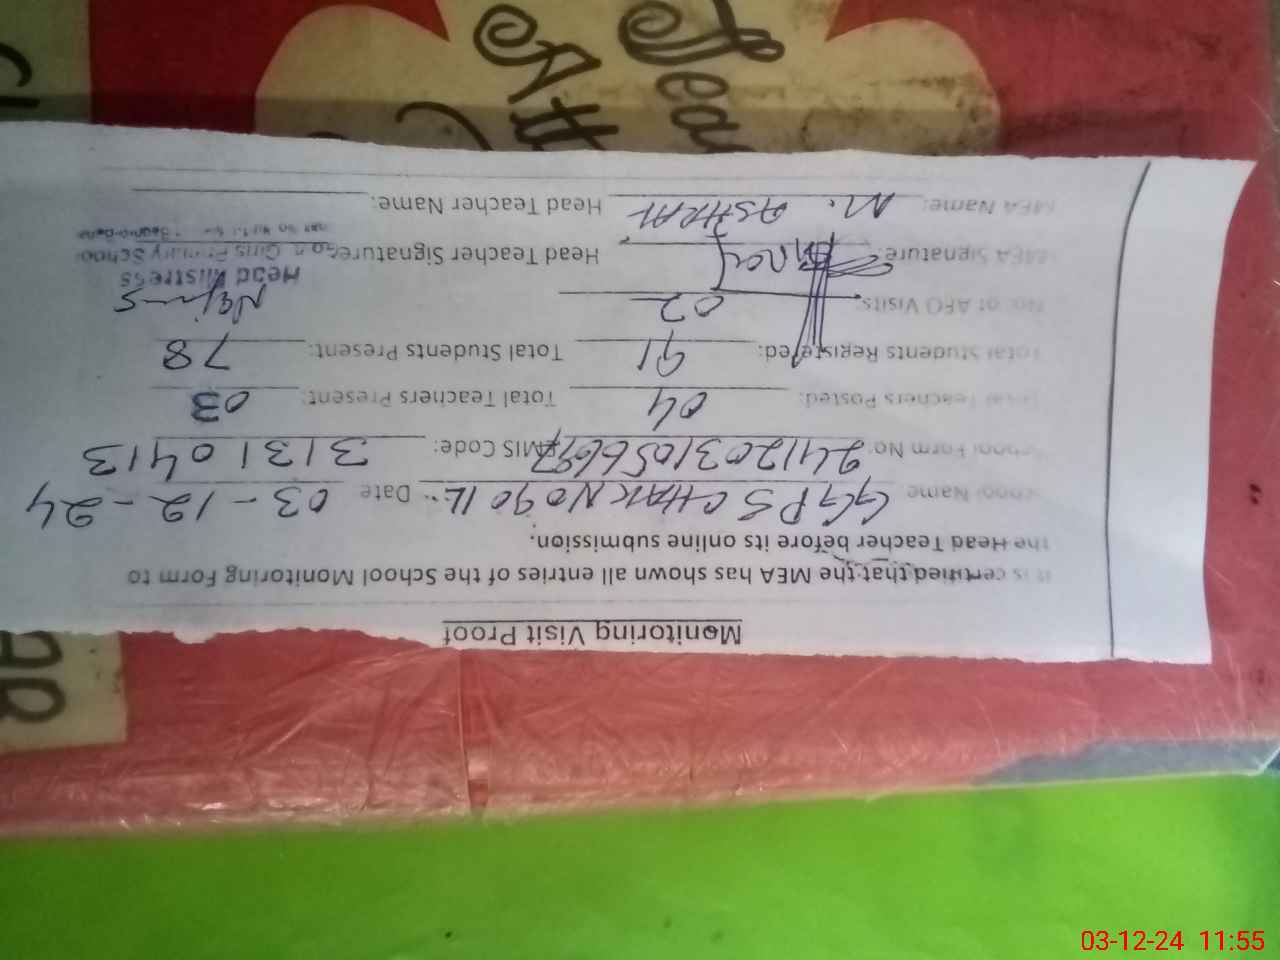 Monitoring Visit Proof
It is certified that the MEA has shown all entries of the School Monitoring Form to
the Head Teacher before its online submission.
School Name GGPS CHAK NO 90 1L Date 03-12-24
School Form No: 24120310566697 EMIS Code: 31310413
Total Teachers Posted: 04 Total Teachers Present: 03
Total Students Registered: 91 Total Students Present: 78
No: of AFO Visits: 02
MEA Signature: Head Teacher Signature:
Head Mistress
Girls Primary School
MEA Name: M. ASHRAF Head Teacher Name:
03-12-24 11:55